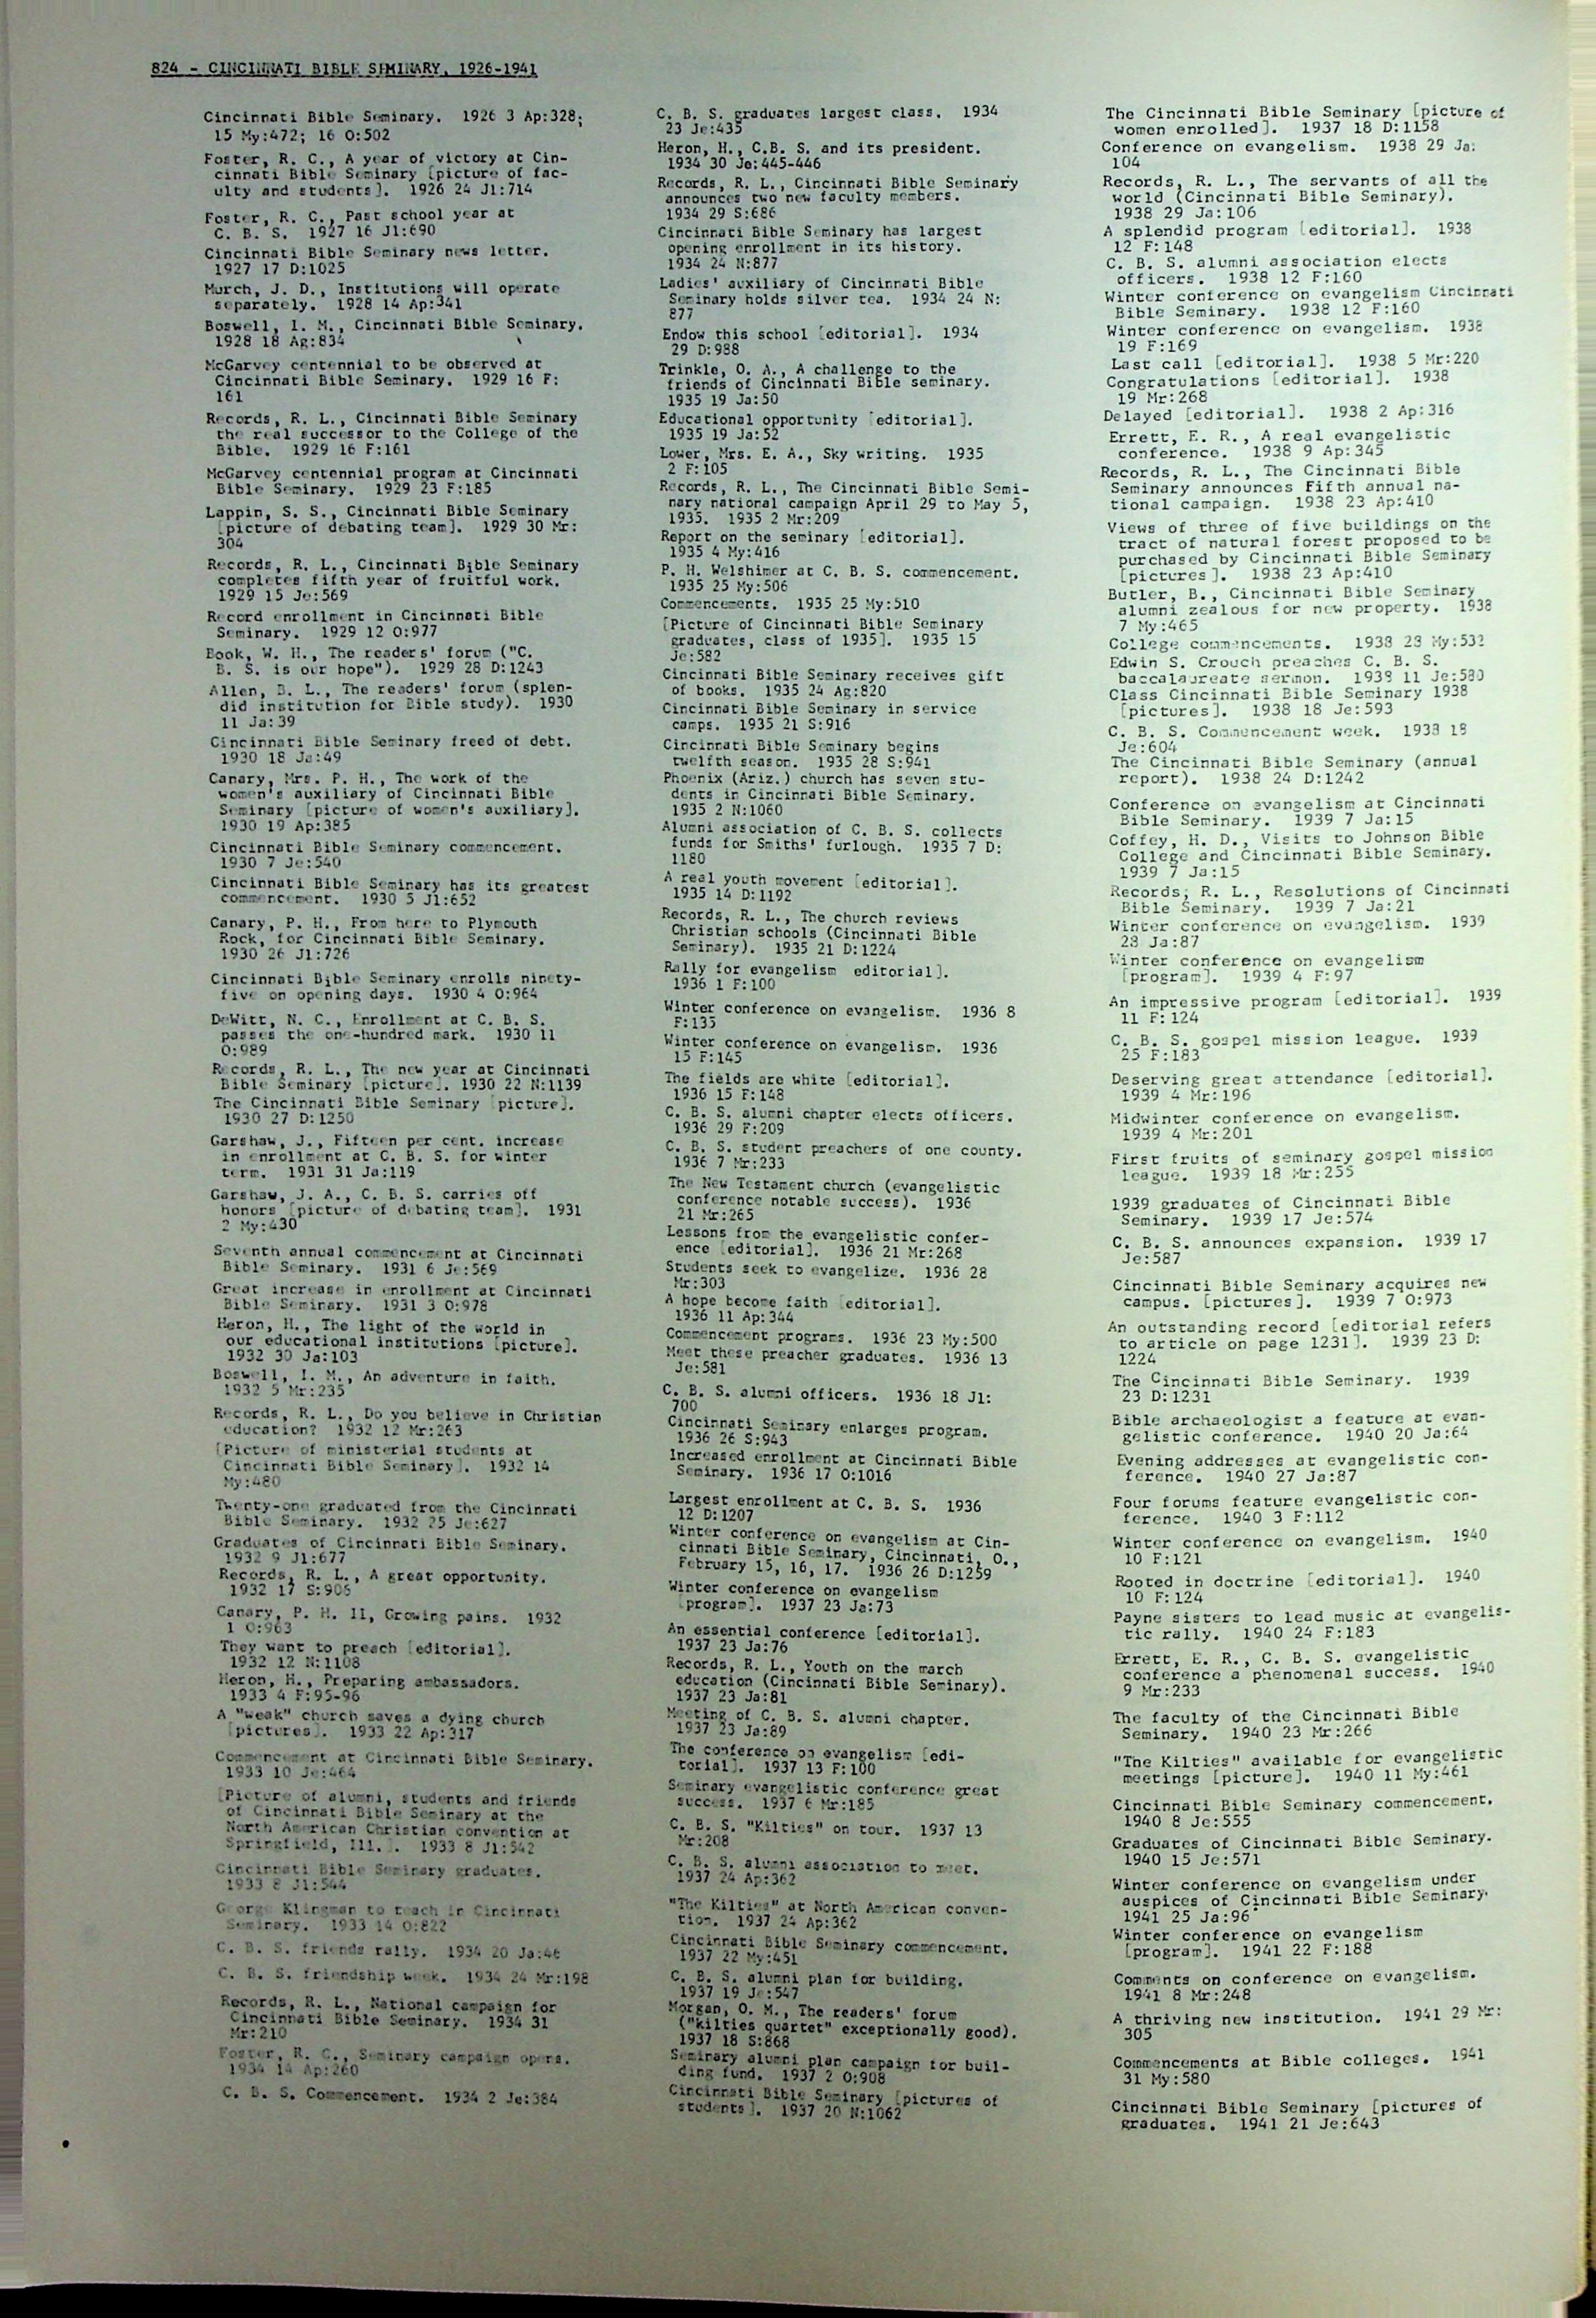 824 - CINCINNATI BIBLE SEMINARY, 1926-1941
Cincinnati Bible Seminary. 1926 3 Ap:328;
15 My:472; 16 O:502
Foster, R. C., A year of victory at Cin-
cinnati Bible Seminary [picture of fac-
ulty and students]. 1926 24 Jl:714
Foster, R. C., Past school year at
C. B. S. 1927 16 Jl:690
Cincinnati Bible Seminary news letter.
1927 17 D:1025
Murch, J. D., Institutions will operate
separately. 1928 14 Ap:341
Boswell, I. M., Cincinnati Bible Seminary.
1928 18 Ag:834
McGarvey centennial to be observed at
Cincinnati Bible Seminary. 1929 16 F:
161
Records, R. L., Cincinnati Bible Seminary
the real successor to the College of the
Bible. 1929 16 F:161
McGarvey centennial program at Cincinnati
Bible Seminary. 1929 23 F:185
Lappin, S. S., Cincinnati Bible Seminary
[picture of debating team]. 1929 30 Mr:
304
Records, R. L., Cincinnati Bible Seminary
completes fifth year of fruitful work.
1929 15 Je:569
Record enrollment in Cincinnati Bible
Seminary. 1929 12 O:977
Book, W. H., The readers' forum ("C.
B. S. is our hope"). 1929 28 D:1243
Allen, B. L., The readers' forum (splen-
did institution for Bible study). 1930
11 Ja:39
Cincinnati Bible Seminary freed of debt.
1930 18 Ja:49
Canary, Mrs. P. H., The work of the
women's auxiliary of Cincinnati Bible
Seminary [picture of women's auxiliary].
1930 19 Ap:385
Cincinnati Bible Seminary commencement.
1930 7 Je:540
Cincinnati Bible Seminary has its greatest
commencement. 1930 5 Jl:652
Canary, P. H., From here to Plymouth
Rock, for Cincinnati Bible Seminary.
1930 26 Jl:726
Cincinnati Bible Seminary enrolls ninety-
five on opening days. 1930 4 O:964
DeWitt, N. C., Enrollment at C. B. S.
passes the one-hundred mark. 1930 11
O:989
Records, R. L., The new year at Cincinnati
Bible Seminary [picture]. 1930 22 N:1139
The Cincinnati Bible Seminary [picture].
1930 27 D:1250
Garshaw, J., Fifteen per cent. increase
in enrollment at C. B. S. for winter
term. 1931 31 Ja:119
Garshaw, J. A., C. B. S. carries off
honors [picture of debating team]. 1931
2 My:430
Seventh annual commencement at Cincinnati
Bible Seminary. 1931 6 Je:569
Great increase in enrollment at Cincinnati
Bible Seminary. 1931 3 O:978
Heron, H., The light of the world in
our educational institutions [picture].
1932 30 Ja:103
Boswell, I. M., An adventure in faith.
1932 5 Mr:235
Records, R. L., Do you believe in Christian
education? 1932 12 Mr:263
[Picture of ministerial students at
Cincinnati Bible Seminary]. 1932 14
My:480
Twenty-one graduated from the Cincinnati
Bible Seminary. 1932 25 Je:627
Graduates of Cincinnati Bible Seminary.
1932 9 Jl:677
Records, R. L., A great opportunity.
1932 17 S:906
Canary, P. H. II, Growing pains. 1932
1 O:963
They want to preach [editorial].
1932 12 N:1108
Heron, H., Preparing ambassadors.
1933 4 F:95-96
A "weak" church saves a dying church
[pictures]. 1933 22 Ap:317
Commencement at Cincinnati Bible Seminary.
1933 10 Je:464
[Picture of alumni, students and friends
of Cincinnati Bible Seminary at the
North American Christian convention at
Springfield, Ill.]. 1933 8 Jl:542
Cincinnati Bible Seminary graduates.
1933 8 Jl:544
George Klingman to teach in Cincinnati
Seminary. 1933 14 O:822
C. B. S. friends rally. 1934 20 Ja:46
C. B. S. friendship week. 1934 24 Mr:198
Records, R. L., National campaign for
Cincinnati Bible Seminary. 1934 31
Mr:210
Foster, R. C., Seminary campaign opens.
1934 14 Ap:260
C. B. S. Commencement. 1934 2 Je:384
C. B. S. graduates largest class. 1934
23 Je:435
Heron, H., C.B. S. and its president.
1934 30 Je:445-446
Records, R. L., Cincinnati Bible Seminary
announces two new faculty members.
1934 29 S:686
Cincinnati Bible Seminary has largest
opening enrollment in its history.
1934 24 N:877
Ladies' auxiliary of Cincinnati Bible
Seminary holds silver tea. 1934 24 N:
877
Endow this school [editorial]. 1934
29 D:988
Trinkle, O. A., A challenge to the
friends of Cincinnati Bible seminary.
1935 19 Ja:50
Educational opportunity [editorial].
1935 19 Ja:52
Lower, Mrs. E. A., Sky writing. 1935
2 F:105
Records, R. L., The Cincinnati Bible Semi-
nary national campaign April 29 to May 5,
1935. 1935 2 Mr:209
Report on the seminary [editorial].
1935 4 My:416
P. H. Welshimer at C. B. S. commencement.
1935 25 My:506
Commencements. 1935 25 My:510
[Picture of Cincinnati Bible Seminary
graduates, class of 1935]. 1935 15
Je:582
Cincinnati Bible Seminary receives gift
of books. 1935 24 Ag:820
Cincinnati Bible Seminary in service
camps. 1935 21 S:916
Cincinnati Bible Seminary begins
twelfth season. 1935 28 S:941
Phoenix (Ariz.) church has seven stu-
dents in Cincinnati Bible Seminary.
1935 2 N:1060
Alumni association of C. B. S. collects
funds for Smiths' furlough. 1935 7 D:
1180
A real youth movement [editorial].
1935 14 D:1192
Records, R. L., The church reviews
Christian schools (Cincinnati Bible
Seminary). 1935 21 D:1224
Rally for evangelism editorial].
1936 1 F:100
Winter conference on evangelism. 1936 8
F:135
Winter conference on evangelism. 1936
15 F:145
The fields are white [editorial].
1936 15 F:148
C. B. S. alumni chapter elects officers.
1936 29 F:209
C. B. S. student preachers of one county.
1936 7 Mr:233
The New Testament church (evangelistic
conference notable success). 1936
21 Mr:265
Lessons from the evangelistic confer-
ence [editorial]. 1936 21 Mr:268
Students seek to evangelize. 1936 28
Mr:303
A hope become faith [editorial].
1936 11 Ap:344
Commencement programs. 1936 23 My:500
Meet these preacher graduates. 1936 13
Je:581
C. B. S. alumni officers. 1936 18 Jl:
700
Cincinnati Seminary enlarges program.
1936 26 S:943
Increased enrollment at Cincinnati Bible
Seminary. 1936 17 O:1016
Largest enrollment at C. B. S. 1936
12 D:1207
Winter conference on evangelism at Cin-
cinnati Bible Seminary, Cincinnati, O.,
February 15, 16, 17. 1936 26 D:1259
Winter conference on evangelism
[program]. 1937 23 Ja:73
An essential conference [editorial].
1937 23 Ja:76
Records, R. L., Youth on the march
education (Cincinnati Bible Seminary).
1937 23 Ja:81
Meeting of C. B. S. alumni chapter.
1937 23 Ja:89
The conference on evangelism [edi-
torial]. 1937 13 F:100
Seminary evangelistic conference great
success. 1937 6 Mr:185
C. B. S. "Kilties" on tour. 1937 13
Mr:208
C. B. S. alumni association to meet.
1937 24 Ap:362
"The Kilties" at North American conven-
tion. 1937 24 Ap:362
Cincinnati Bible Seminary commencement.
1937 22 My:451
C. B. S. alumni plan for building.
1937 19 Je:547
Morgan, O. M., The readers' forum
("kilties quartet" exceptionally good).
1937 18 S:868
Seminary alumni plan campaign for buil-
ding fund. 1937 2 O:908
Cincinnati Bible Seminary [pictures of
students]. 1937 20 N:1062
The Cincinnati Bible Seminary [picture of
women enrolled]. 1937 18 D:1158
Conference on evangelism. 1938 29 Ja:
104
Records, R. L., The servants of all the
world (Cincinnati Bible Seminary).
1938 29 Ja:106
A splendid program [editorial]. 1938
12 F:148
C. B. S. alumni association elects
officers. 1938 12 F:160
Winter conference on evangelism Cincinnati
Bible Seminary. 1938 12 F:160
Winter conference on evangelism. 1938
19 F:169
Last call [editorial]. 1938 5 Mr:220
Congratulations [editorial]. 1938
19 Mr:268
Delayed [editorial]. 1938 2 Ap:316
Errett, E. R., A real evangelistic
conference. 1938 9 Ap:345
Records, R. L., The Cincinnati Bible
Seminary announces Fifth annual na-
tional campaign. 1938 23 Ap:410
Views of three of five buildings on the
tract of natural forest proposed to be
purchased by Cincinnati Bible Seminary
[pictures]. 1938 23 Ap:410
Butler, B., Cincinnati Bible Seminary
alumni zealous for new property. 1938
7 My:465
College commencements. 1938 28 My:532
Edwin S. Crouch preaches C. B. S.
baccalaureate sermon. 1938 11 Je:580
Class Cincinnati Bible Seminary 1938
[pictures]. 1938 18 Je:593
C. B. S. Commencement week. 1938 18
Je:604
The Cincinnati Bible Seminary (annual
report). 1938 24 D:1242
Conference on evangelism at Cincinnati
Bible Seminary. 1939 7 Ja:15
Coffey, H. D., Visits to Johnson Bible
College and Cincinnati Bible Seminary.
1939 7 Ja:15
Records, R. L., Resolutions of Cincinnati
Bible Seminary. 1939 7 Ja:21
Winter conference on evangelism. 1939
28 Ja:87
Winter conference on evangelism
[program]. 1939 4 F:97
An impressive program [editorial]. 1939
11 F:124
C. B. S. gospel mission league. 1939
25 F:183
Deserving great attendance [editorial].
1939 4 Mr:196
Midwinter conference on evangelism.
1939 4 Mr:201
First fruits of seminary gospel mission
league. 1939 18 Mr:255
1939 graduates of Cincinnati Bible
Seminary. 1939 17 Je:574
C. B. S. announces expansion. 1939 17
Je:587
Cincinnati Bible Seminary acquires new
campus. [pictures]. 1939 7 O:973
An outstanding record [editorial refers
to article on page 1231]. 1939 23 D:
1224
The Cincinnati Bible Seminary. 1939
23 D:1231
Bible archaeologist a feature at evan-
gelistic conference. 1940 20 Ja:64
Evening addresses at evangelistic con-
ference. 1940 27 Ja:87
Four forums feature evangelistic con-
ference. 1940 3 F:112
Winter conference on evangelism. 1940
10 F:121
Rooted in doctrine [editorial]. 1940
10 F:124
Payne sisters to lead music at evangelis-
tic rally. 1940 24 F:183
Errett, E. R., C. B. S. evangelistic
conference a phenomenal success. 1940
9 Mr:233
The faculty of the Cincinnati Bible
Seminary. 1940 23 Mr:266
"The Kilties" available for evangelistic
meetings [picture]. 1940 11 My:461
Cincinnati Bible Seminary commencement.
1940 8 Je:555
Graduates of Cincinnati Bible Seminary.
1940 15 Je:571
Winter conference on evangelism under
auspices of Cincinnati Bible Seminary.
1941 25 Ja:96
Winter conference on evangelism
[program]. 1941 22 F:188
Comments on conference on evangelism.
1941 8 Mr:248
A thriving new institution. 1941 29 Mr:
305
Commencements at Bible colleges. 1941
31 My:580
Cincinnati Bible Seminary [pictures of
graduates. 1941 21 Je:643